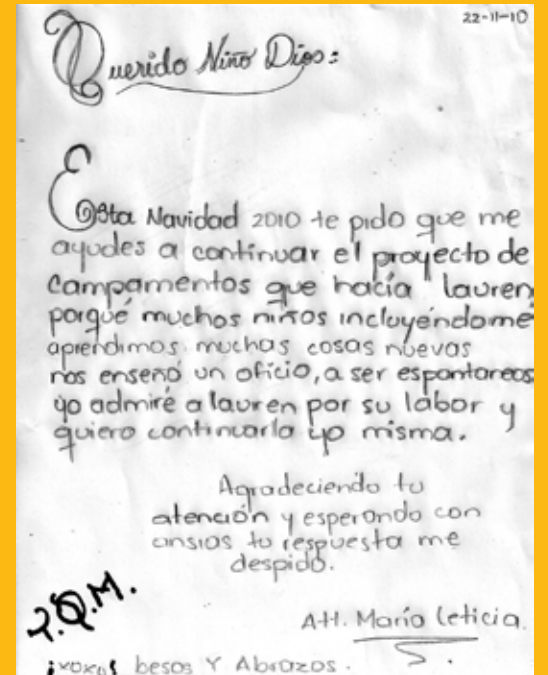 22-11-10
Querido Niño Dios:
Esta Navidad 2010 te pido que me
ayudes a continuar el proyecto de
campamentos que hacía lauren
porqué muchos niños incluyéndome
aprendimos muchas cosas nuevas
nos enseñó un oficio, a ser espontareos
yo admiré a lauren por su labor y
quiero continuarla yo misma.
Agradeciendo tu
atención y esperando con
ansias tu respuesta me
despido.
T.Q.M.
Att. María leticia.
besos Y Abrazos.